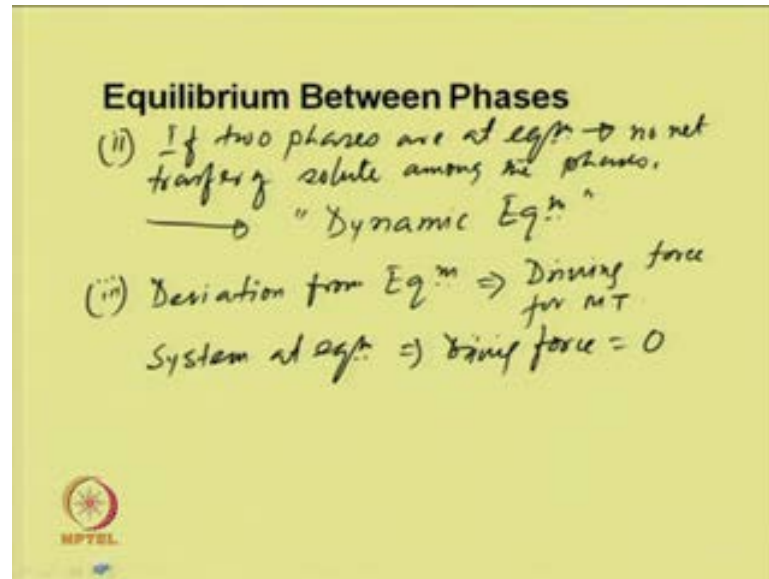 Equilibrium Between Phases
(ii) If two phases are at eqm → no net
transfer of solute among the phases.
→ "Dynamic Eqm"
(iii) Deviation from Eqm ⇒ Driving force
for MT
System at eqm ⇒ Driving force = 0
NPTEL